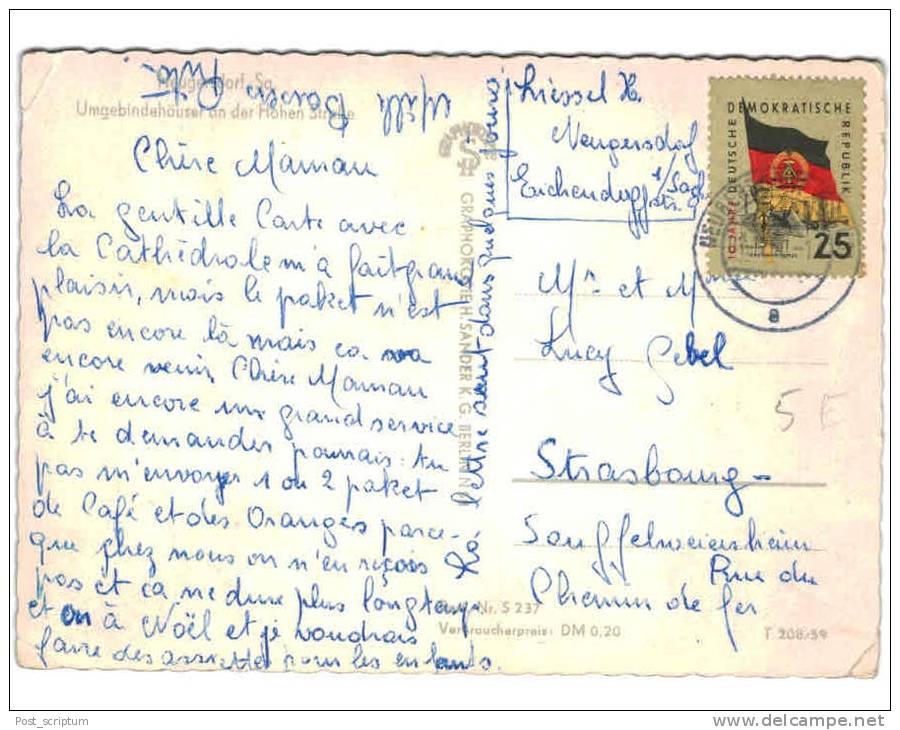 Neugersdorf Sa.
Umgebindehäuser an der Hohen Straße
Mille Baisers
Chère Maman
La gentille Carte avec
la Cathédrale m'a fait grand
plaisir, mais le paket n'est
pas encore là mais ca va
encore venir, Chère Maman
j'ai encore un grand service
à te demander pourrais-tu
pas m'envoyer 1 ou 2 paket
de Café et des Oranges parce-
que chez nous on n'en reçois
pas et ca ne dure plus longtemps
et on à Noël et je voudrais
faire des assiettes pour les enfants.
La lettre suit dans quelques jours
GRAPHOKOPIE H. SANDER K. G. BERLIN
Nr. S 237
Verbraucherpreis: DM 0,20
T 208/59
Kiessel H.
Neugersdorf
i/Sachs
Eichendorffstr.
10 JAHRE DEUTSCHE DEMOKRATISCHE REPUBLIK
25
a
Mr et
Lucy Gebel
Strasbourg-
Souffelweiersheim
Rue du
Chemin de fer
5 E
Post_scriptum
www.delcampe.net